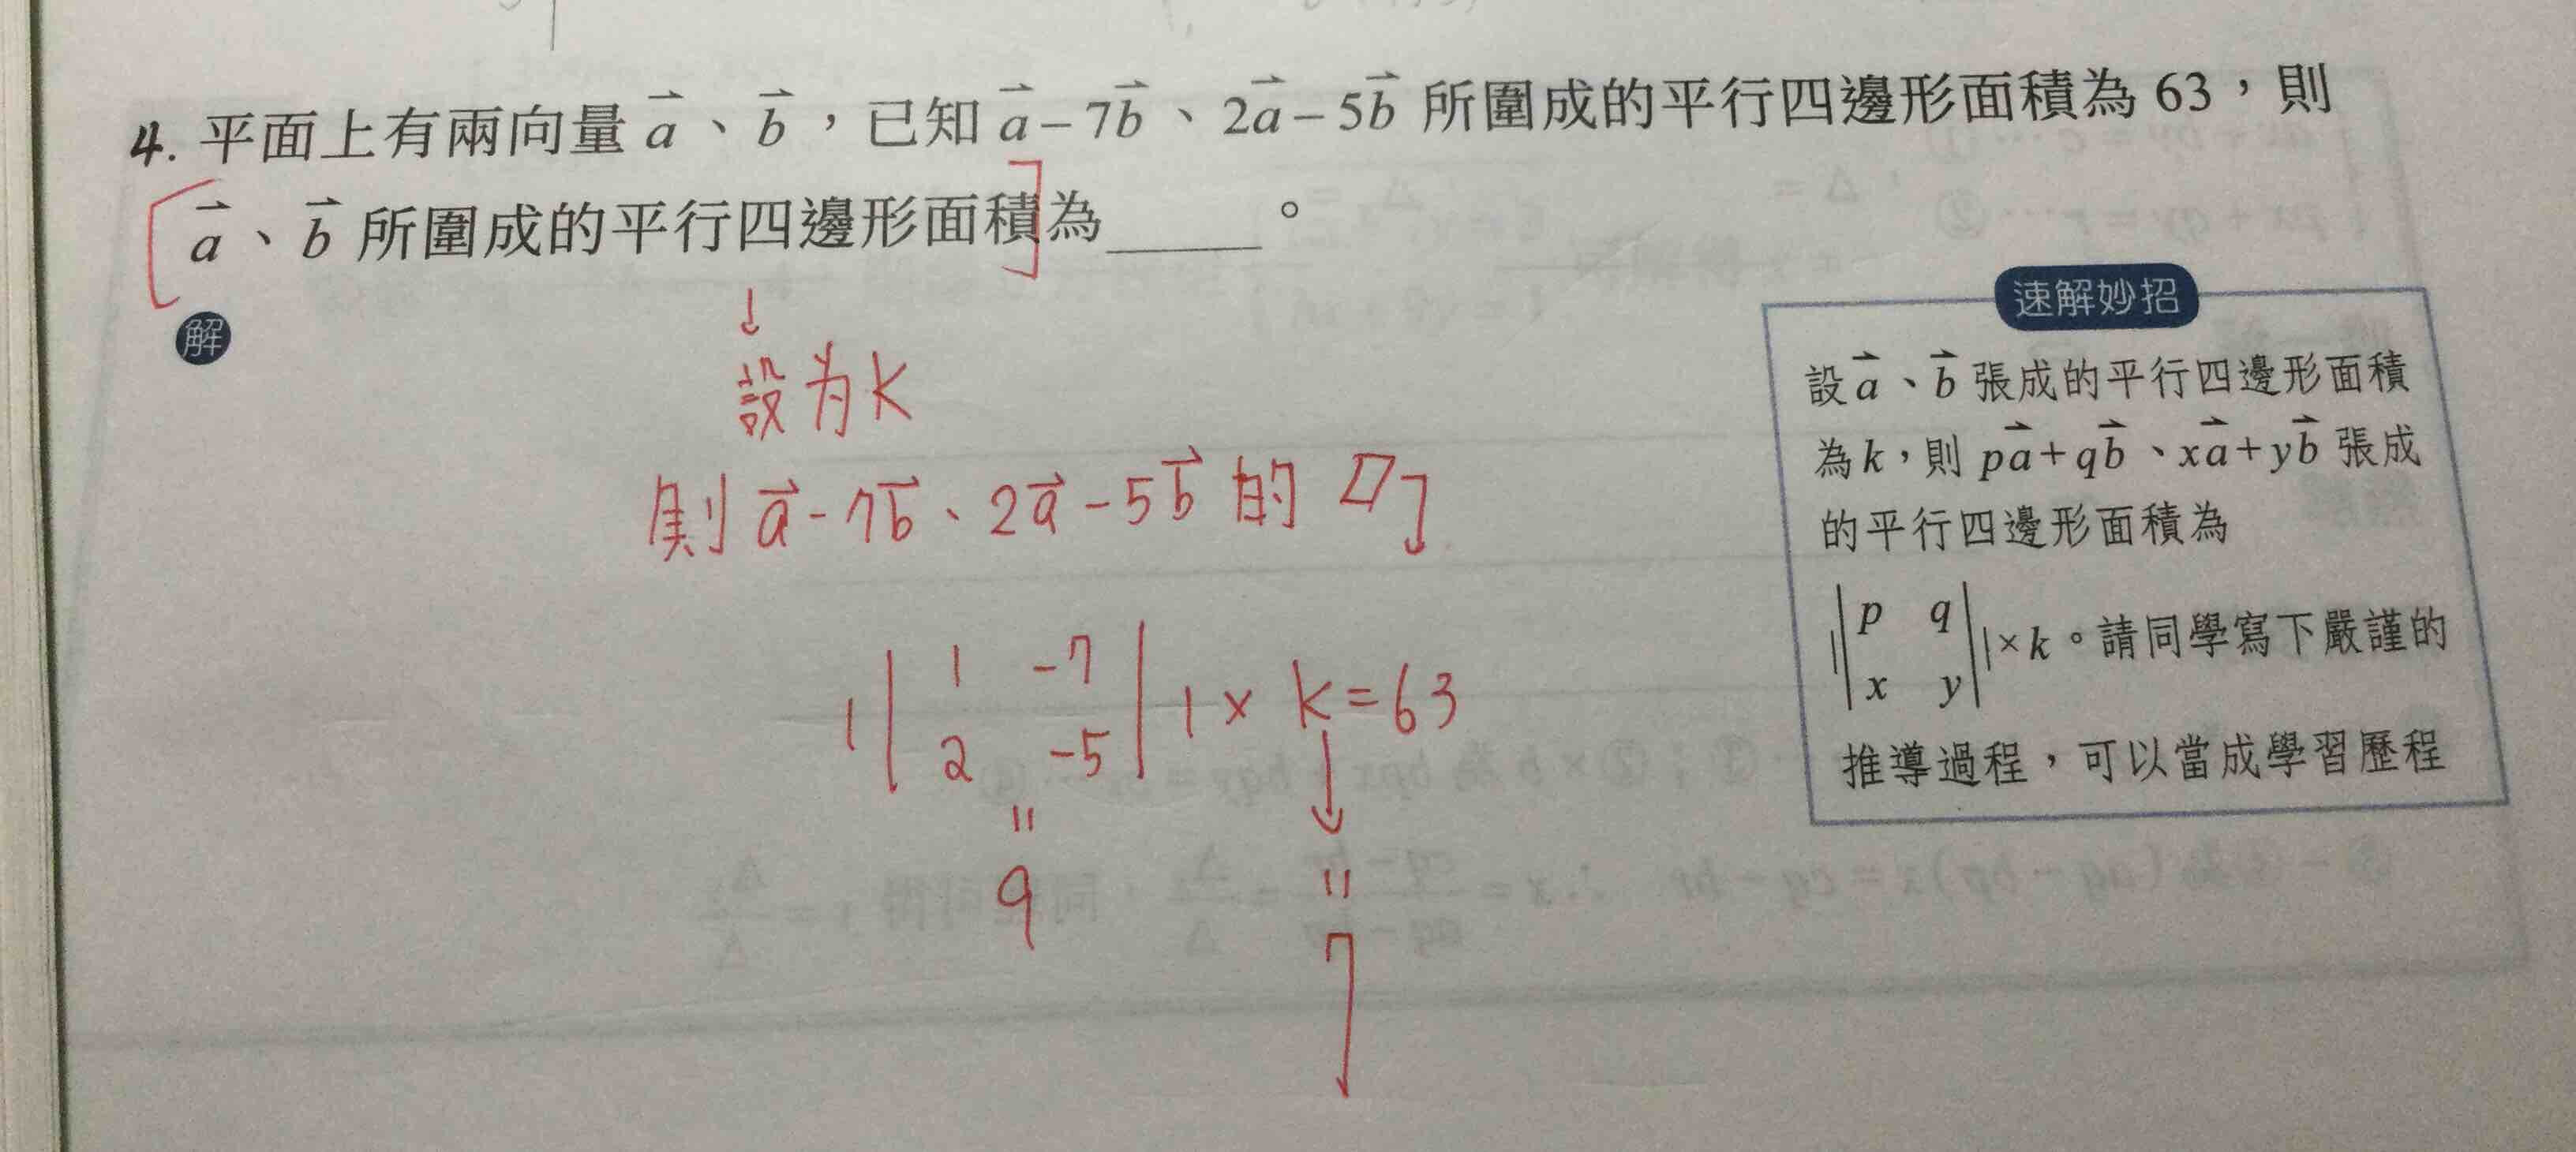 4. 平面上有兩向量 a⃗、b⃗，已知 a⃗ − 7b⃗、2a⃗ − 5b⃗ 所圍成的平行四邊形面積為 63，則
[a⃗、b⃗ 所圍成的平行四邊形面積]為_____。
解
↓
設为K
則 a⃗ - 7b⃗、2a⃗ - 5b⃗ 的 ▱
| | 1 -7 |
| 2 -5 | | × k = 63
=
9
↓
=
7
速解妙招
設 a⃗、b⃗ 張成的平行四邊形面積
為 k，則 pa⃗ + qb⃗、xa⃗ + yb⃗ 張成
的平行四邊形面積為
| | p q |
| x y | | × k。請同學寫下嚴謹的
推導過程，可以當成學習歷程